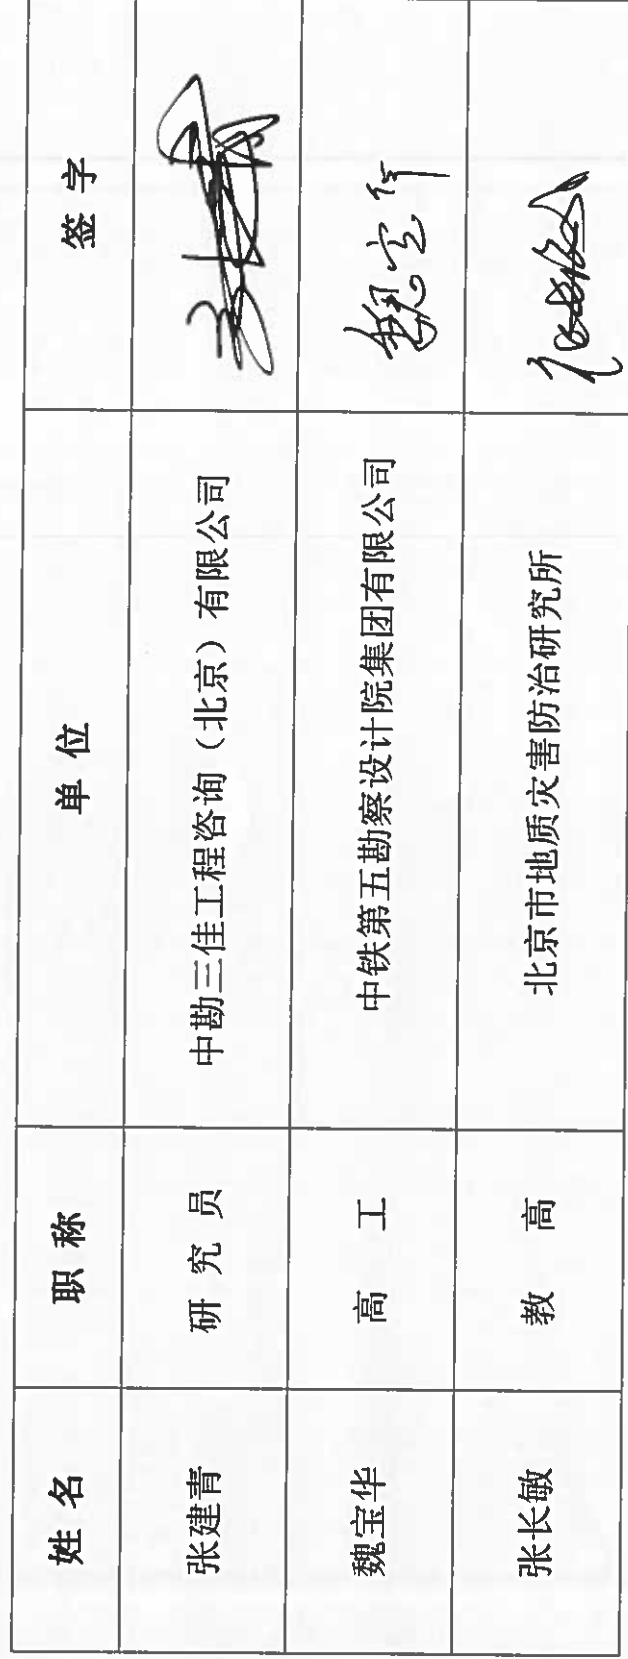 姓名 职称 单位 签字
张建青 研究员 中勘三佳工程咨询（北京）有限公司
魏宝华 高工 中铁第五勘察设计院集团有限公司 魏宝华
张长敏 教高 北京市地质灾害防治研究所